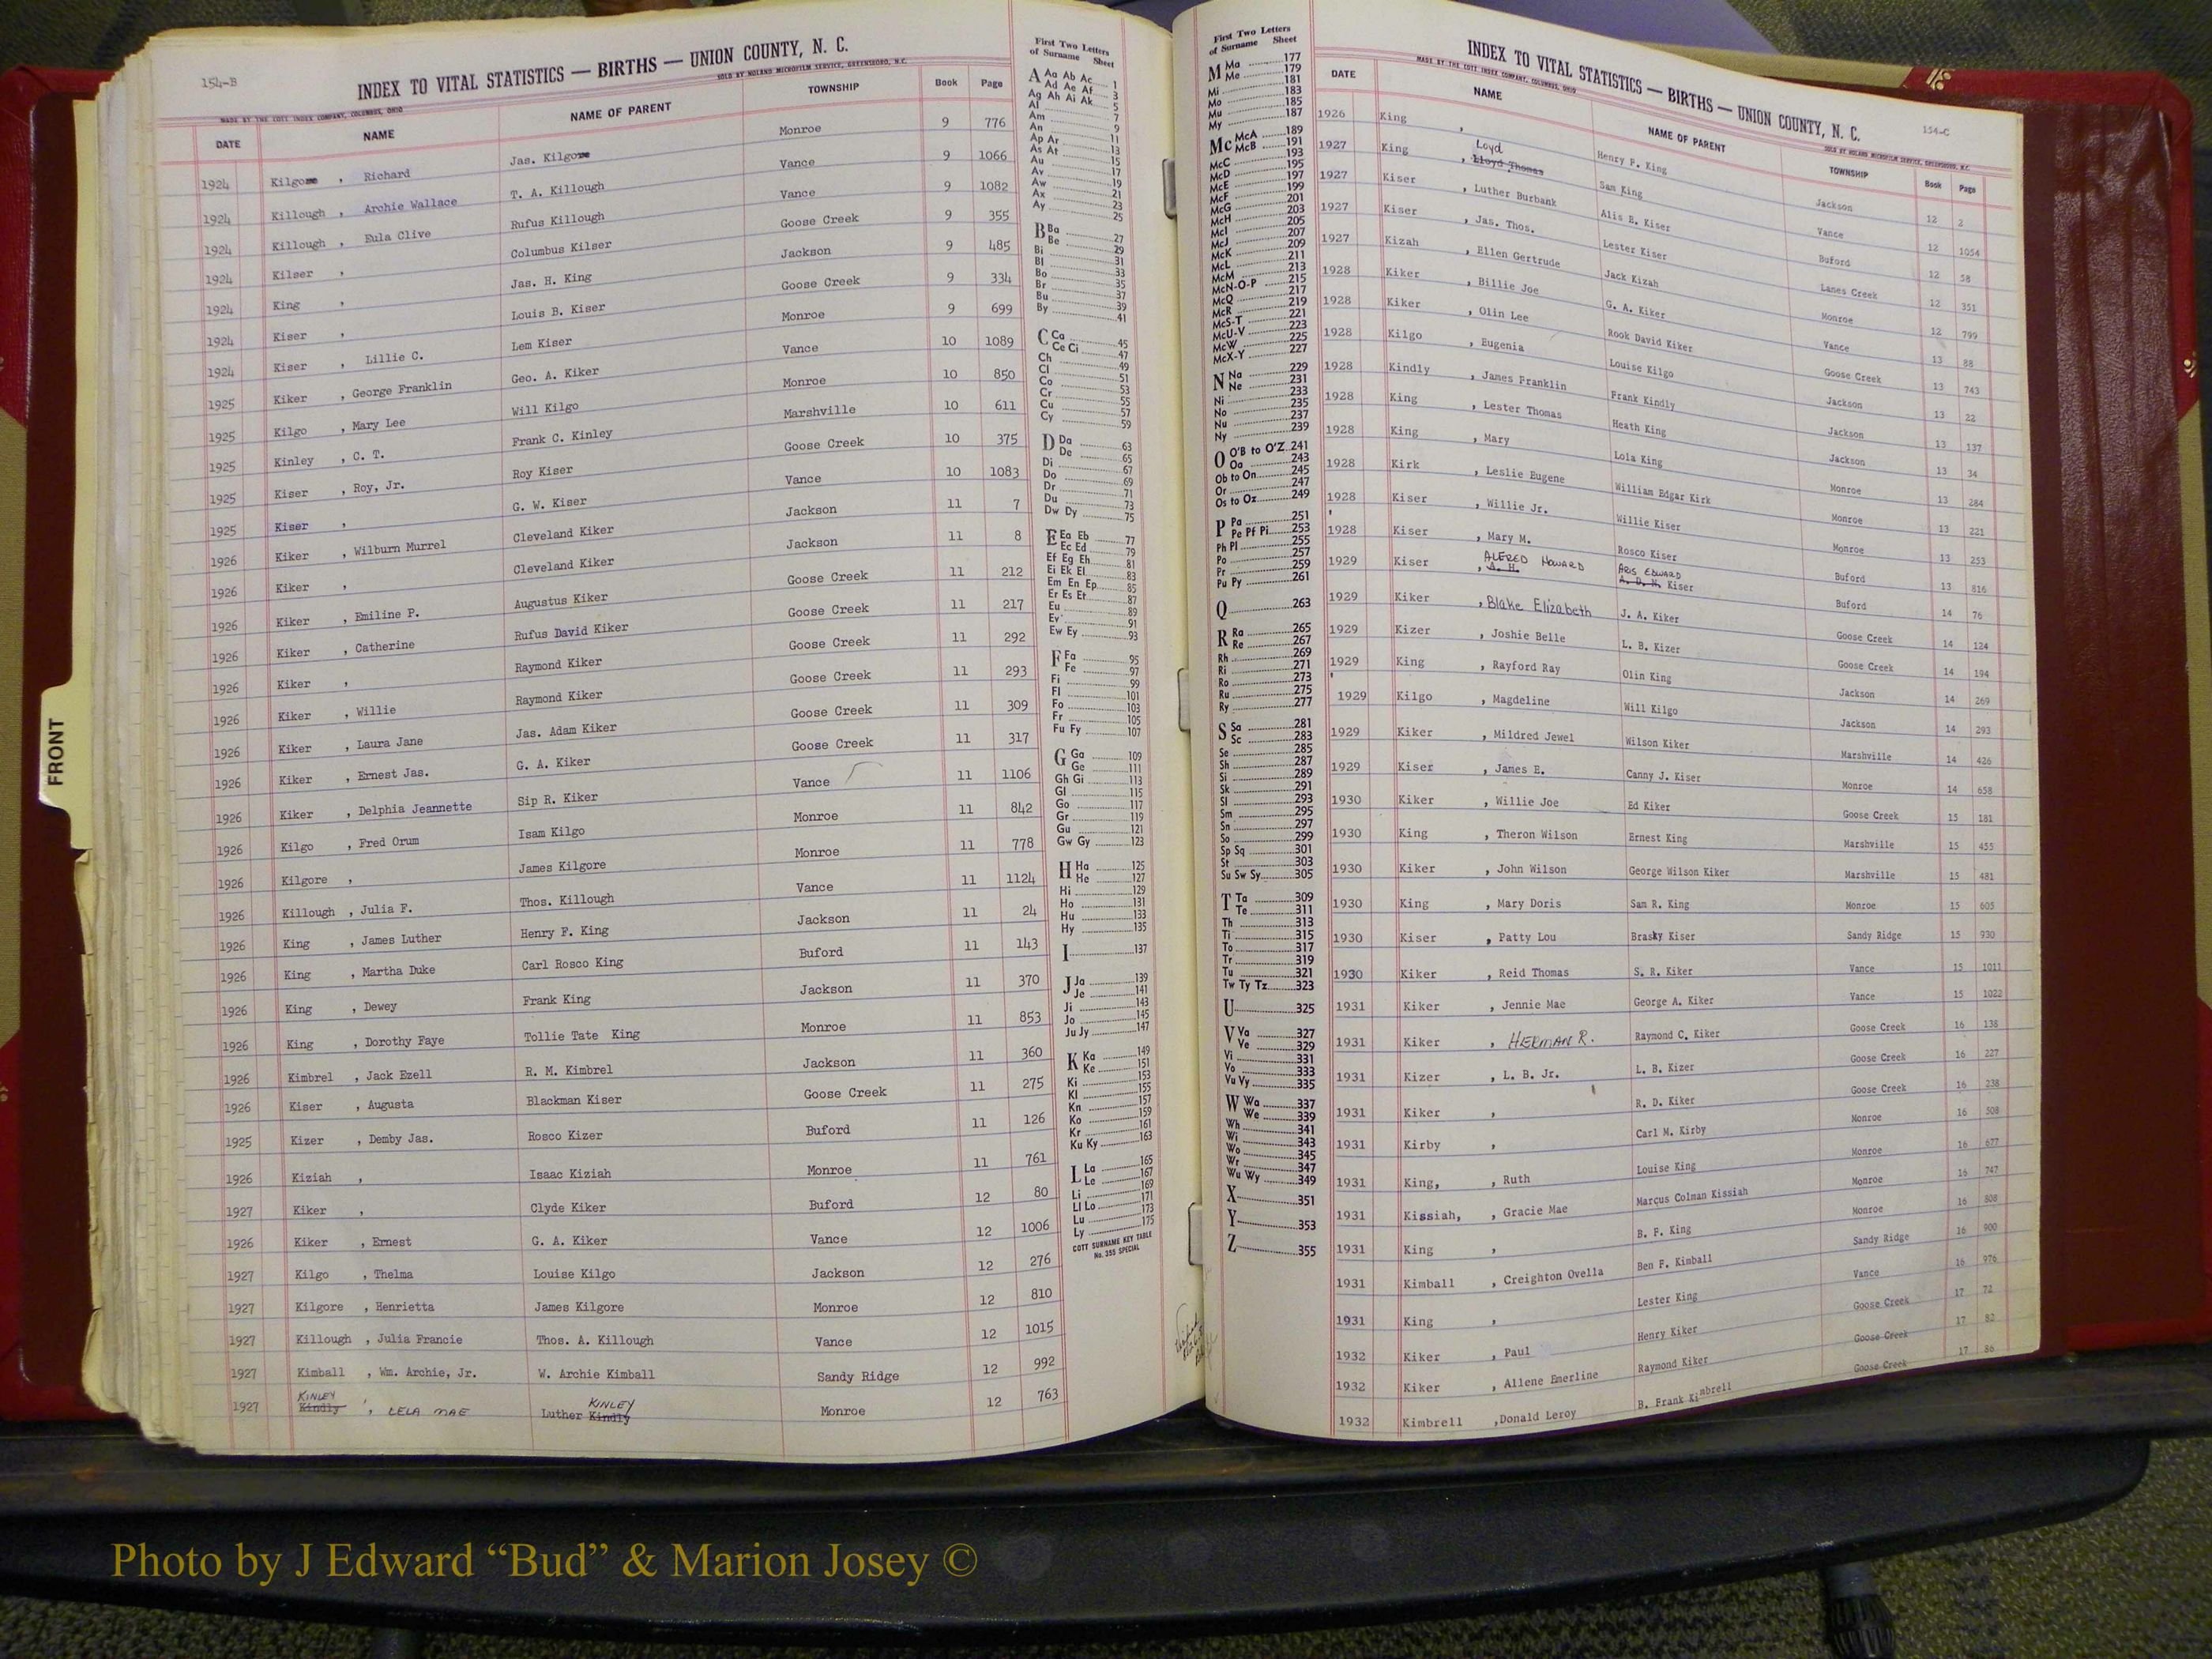 154-B
INDEX TO VITAL STATISTICS — BIRTHS — UNION COUNTY, N. C.
MADE BY THE COTT INDEX COMPANY, COLUMBUS, OHIO SOLD BY NOLAND MICROFILM SERVICE, GREENSBORO, N.C.
DATE NAME NAME OF PARENT TOWNSHIP Book Page
1924 Kilgore , Richard Jas. Kilgore Monroe 9 776
1924 Killough , Archie Wallace T. A. Killough Vance 9 1066
1924 Killough , Eula Clive Rufus Killough Vance 9 1082
1924 Kilser , Columbus Kilser Goose Creek 9 355
1924 King , Jas. H. King Jackson 9 485
1924 Kiser , Louis B. Kiser Goose Creek 9 334
1924 Kiser , Lillie C. Lem Kiser Monroe 9 699
1925 Kiker , George Franklin Geo. A. Kiker Vance 10 1089
1925 Kilgo , Mary Lee Will Kilgo Monroe 10 850
1925 Kinley , C. T. Frank C. Kinley Marshville 10 611
1925 Kiser , Roy, Jr. Roy Kiser Goose Creek 10 375
1925 Kiser , G. W. Kiser Vance 10 1083
1926 Kiker , Wilburn Murrel Cleveland Kiker Jackson 11 7
1926 Kiker , Cleveland Kiker Jackson 11 8
1926 Kiker , Emiline P. Augustus Kiker Goose Creek 11 212
1926 Kiker , Catherine Rufus David Kiker Goose Creek 11 217
1926 Kiker , Raymond Kiker Goose Creek 11 292
1926 Kiker , Willie Raymond Kiker Goose Creek 11 293
1926 Kiker , Laura Jane Jas. Adam Kiker Goose Creek 11 309
1926 Kiker , Ernest Jas. G. A. Kiker Goose Creek 11 317
1926 Kiker , Delphia Jeannette Sip R. Kiker Vance 11 1106
1926 Kilgo , Fred Orum Isam Kilgo Monroe 11 842
1926 Kilgore , James Kilgore Monroe 11 778
1926 Killough , Julia F. Thos. Killough Vance 11 1124
1926 King , James Luther Henry F. King Jackson 11 24
1926 King , Martha Duke Carl Rosco King Buford 11 143
1926 King , Dewey Frank King Jackson 11 370
1926 King , Dorothy Faye Tollie Tate King Monroe 11 853
1926 Kimbrel , Jack Ezell R. M. Kimbrel Jackson 11 360
1926 Kiser , Augusta Blackman Kiser Goose Creek 11 275
1925 Kizer , Demby Jas. Rosco Kizer Buford 11 126
1926 Kiziah , Isaac Kiziah Monroe 11 761
1927 Kiker , Clyde Kiker Buford 12 80
1926 Kiker , Ernest G. A. Kiker Vance 12 1006
1927 Kilgo , Thelma Louise Kilgo Jackson 12 276
1927 Kilgore , Henrietta James Kilgore Monroe 12 810
1927 Killough , Julia Francie Thos. A. Killough Vance 12 1015
1927 Kimball , Wm. Archie, Jr. W. Archie Kimball Sandy Ridge 12 992
KINLEY KINLEY
1927 Kindly , LELA MAE Luther Kindly Monroe 12 763
First Two Letters
of Surname Sheet
A Aa Ab Ac 1
Ad Ae Af 3
Ag Ah Ai Ak 5
Al 7
Am 9
An 11
Ap Ar 13
As At 15
Au 17
Av 19
Aw 21
Ax 23
Ay 25
B Ba 27
Be 29
Bi 31
Bl 33
Bo 35
Br 37
Bu 39
By 41
C Ca 45
Ce Ci 47
Ch 49
Cl 51
Co 53
Cr 55
Cu 57
Cy 59
D Da 63
De 65
Di 67
Do 69
Dr 71
Du 73
Dw Dy 75
E Ea Eb 77
Ec Ed 79
Ef Eg Eh 81
Ei Ek El 83
Em En Ep 85
Er Es Et 87
Eu 89
Ev 91
Ew Ey 93
F Fa 95
Fe 97
Fi 99
Fl 101
Fo 103
Fr 105
Fu Fy 107
G Ga 109
Ge 111
Gh Gi 113
Gl 115
Go 117
Gr 119
Gu 121
Gw Gy 123
H Ha 125
He 127
Hi 129
Ho 131
Hu 133
Hy 135
I 137
J Ja 139
Je 141
Ji 143
Jo 145
Ju Jy 147
K Ka 149
Ke 151
Ki 153
Kl 155
Kn 157
Ko 159
Kr 161
Ku Ky 163
L La 165
Le 167
Li 169
Ll Lo 171
Lu 173
Ly 175
COTT SURNAME KEY TABLE
No. 355 SPECIAL
First Two Letters
of Surname Sheet
M Ma 177
Me 179
Mi 181
Mo 183
Mu 185
My 187
Mc McA 189
McB 191
McC 193
McD 195
McE 197
McF 199
McG 201
McH 203
McI 205
McJ 207
McK 209
McL 211
McM 213
McN-O-P 215
McQ 217
McR 219
McS-T 221
McU-V 223
McW 225
McX-Y 227
N Na 229
Ne 231
Ni 233
No 235
Nu 237
Ny 239
O O'B to O'Z 241
Oa 243
Ob to On 245
Or 247
Os to Oz 249
P Pa 251
Pe Pf Pi 253
Ph Pl 255
Po 257
Pr 259
Pu Py 261
Q 263
R Ra 265
Re 267
Rh 269
Ri 271
Ro 273
Ru 275
Ry 277
S Sa 281
Sc 283
Se 285
Sh 287
Si 289
Sk 291
Sl 293
Sm 295
Sn 297
So 299
Sp Sq 301
St 303
Su Sw Sy 305
T Ta 309
Te 311
Th 313
Ti 315
To 317
Tr 319
Tu 321
Tw Ty Tz 323
U 325
V Va 327
Ve 329
Vi 331
Vo 333
Vu Vy 335
W Wa 337
We 339
Wh 341
Wi 343
Wo 345
Wr 347
Wu Wy 349
X 351
Y 353
Z 355
INDEX TO VITAL STATISTICS — BIRTHS — UNION COUNTY, N. C. 154-C
MADE BY THE COTT INDEX COMPANY, COLUMBUS, OHIO SOLD BY NOLAND MICROFILM SERVICE, GREENSBORO, N.C.
DATE NAME NAME OF PARENT TOWNSHIP Book Page
1926 King , Henry P. King Jackson 12 2
Loyd
1927 King , Lloyd Thomas Sam King Vance 12 1054
1927 Kiser , Luther Burbank Alis B. Kiser Buford 12 58
1927 Kiser , Jas. Thos. Lester Kiser Lanes Creek 12 351
1927 Kizah , Ellen Gertrude Jack Kizah Monroe 12 799
1928 Kiker , Billie Joe G. A. Kiker Vance 13 88
1928 Kiker , Olin Lee Rook David Kiker Goose Creek 13 743
1928 Kilgo , Eugenia Louise Kilgo Jackson 13 22
1928 Kindly , James Franklin Frank Kindly Jackson 13 137
1928 King , Lester Thomas Heath King Jackson 13 34
1928 King , Mary Lola King Monroe 13 284
1928 Kirk , Leslie Eugene William Edgar Kirk Monroe 13 221
1928 Kiser , Willie Jr. Willie Kiser Monroe 13 253
1928 Kiser , Mary M. Rosco Kiser Buford 13 816
ALFRED HOWARD ARIS EDWARD
1929 Kiser , A. H. A. D. H. Kiser Buford 14 76
1929 Kiker , Blake Elizabeth J. A. Kiker Goose Creek 14 124
1929 Kizer , Joshie Belle L. B. Kizer Goose Creek 14 194
1929 King , Rayford Ray Olin King Jackson 14 269
1929 Kilgo , Magdeline Will Kilgo Jackson 14 293
1929 Kiker , Mildred Jewel Wilson Kiker Marshville 14 426
1929 Kiser , James E. Canny J. Kiser Monroe 14 658
1930 Kiker , Willie Joe Ed Kiker Goose Creek 15 181
1930 King , Theron Wilson Ernest King Marshville 15 455
1930 Kiker , John Wilson George Wilson Kiker Marshville 15 481
1930 King , Mary Doris Sam R. King Monroe 15 605
1930 Kiser , Patty Lou Brasky Kiser Sandy Ridge 15 930
1930 Kiker , Reid Thomas S. R. Kiker Vance 15 1011
1931 Kiker , Jennie Mae George A. Kiker Vance 15 1022
1931 Kiker , HERMAN R. Raymond C. Kiker Goose Creek 16 138
1931 Kizer , L. B. Jr. L. B. Kizer Goose Creek 16 227
1931 Kiker , R. D. Kiker Goose Creek 16 238
1931 Kirby , Carl M. Kirby Monroe 16 508
1931 King, , Ruth Louise King Monroe 16 677
1931 Kissiah, , Gracie Mae Marcus Colman Kissiah Monroe 16 747
1931 King , B. F. King Monroe 16 808
1931 Kimball , Creighton Ovella Ben F. Kimball Sandy Ridge 16 900
1931 King , Lester King Vance 16 976
1932 Kiker , Paul Henry Kiker Goose Creek 17 72
1932 Kiker , Allene Emerline Raymond Kiker Goose Creek 17 82
1932 Kimbrell ,Donald Leroy B. Frank Kimbrell Goose Creek 17 86
FRONT
Photo by J Edward “Bud” & Marion Josey ©